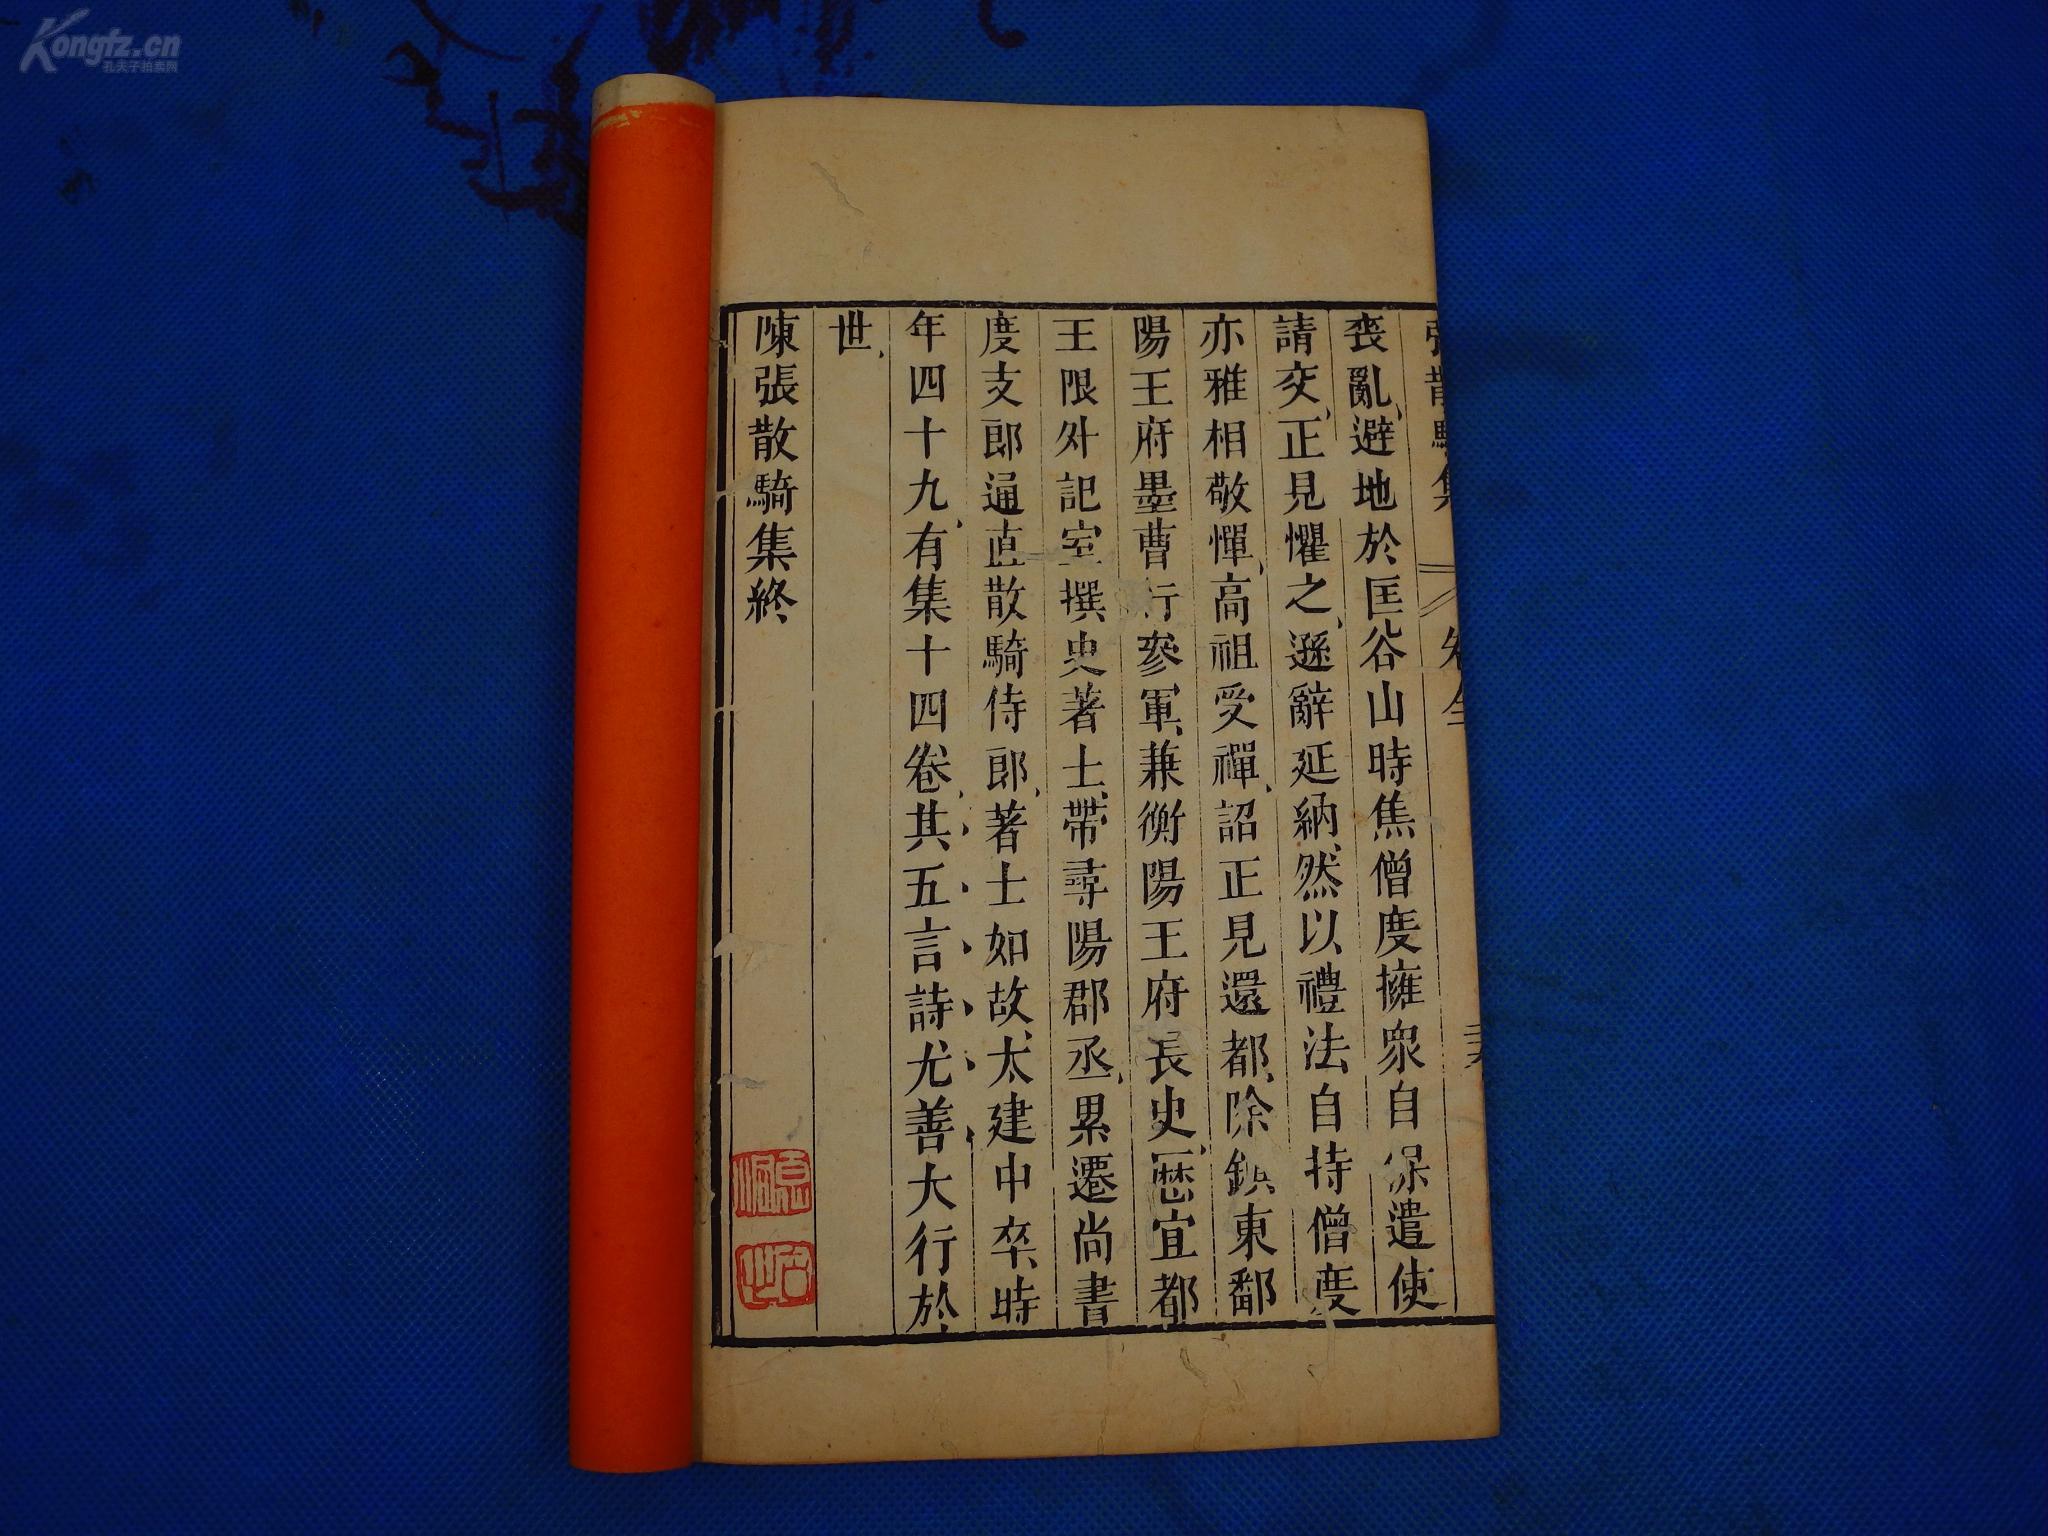 Kongfz.cn
孔夫子拍卖网
張散騎集 卷全
喪亂避地於匡谷山時焦僧度擁衆自保遣使
請交正見懼之遜辭延納然以禮法自持僧度
亦雅相敬憚高祖受禪詔正見還都除鎮東鄱
陽王府墨曹行參軍兼衡陽王府長史歷宜都
王限外記室撰史著士帶尋陽郡丞累遷尚書
度支郎通直散騎侍郎著士如故太建中卒時
年四十九有集十四卷其五言詩尤善大行於
世
陳張散騎集終